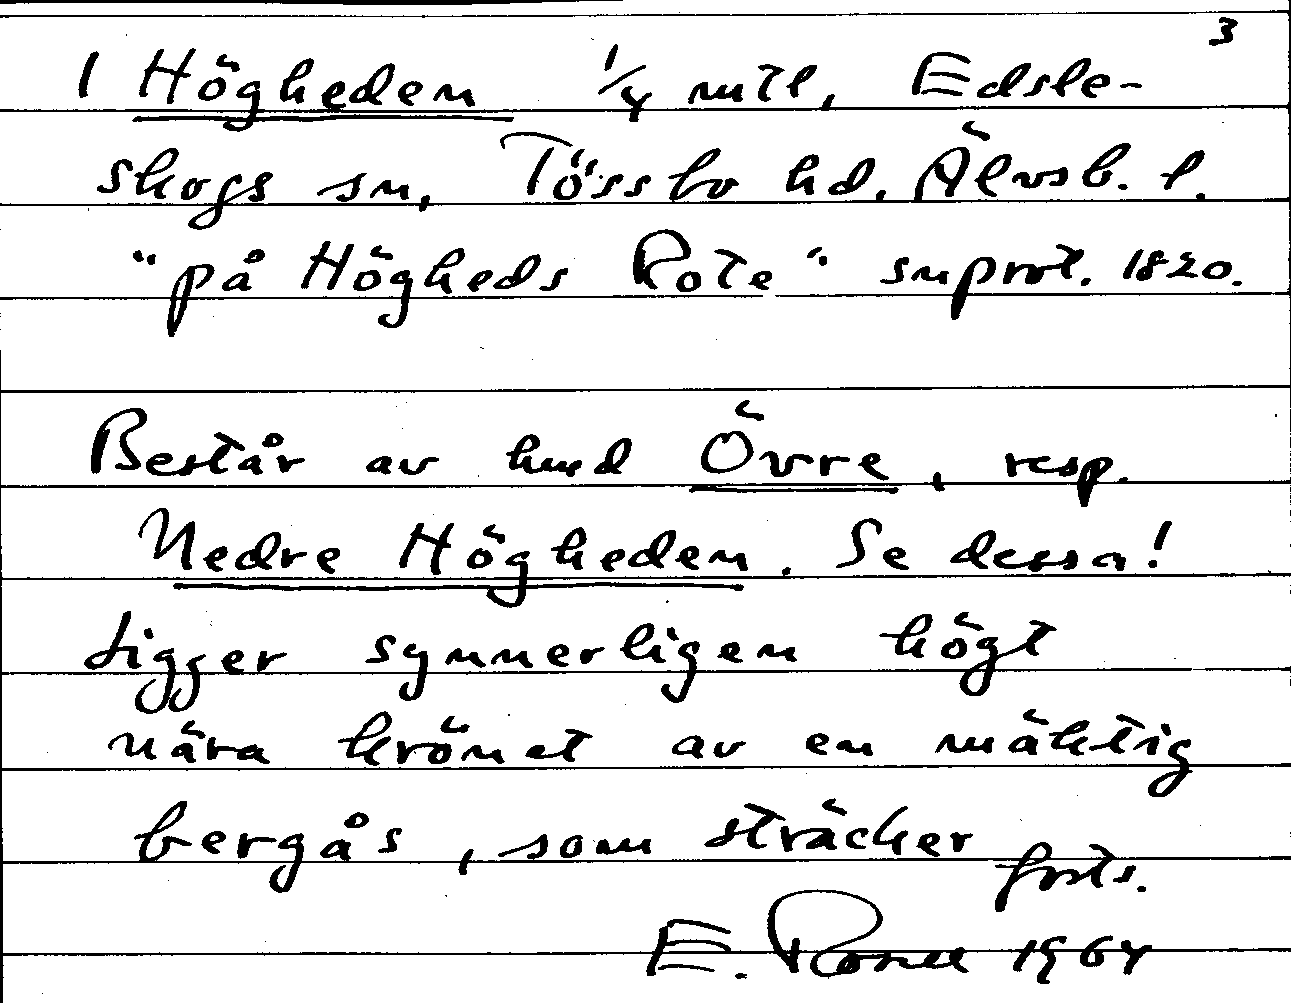 3
1 Högheden 1/4 mtl, Edsle-
skogs sn, Tössbo hd. Älvsb. l.
"på Högheds Rote" snprot. 1820.
Består av hmd Övre, resp.
Nedre Högheden. Se dessa!
Ligger synnerligen högt
nära krönet av en mäktig
bergås, som sträcker
forts.
E. 1964